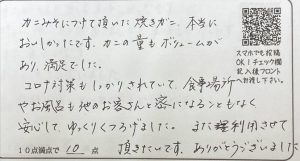 カニみそにつけて頂いた焼きガニ、本当に
おいしかったです。カニの量もボリュームが
あり、満足でした。
コロナ対策もしっかりされていて、食事場所
やお風呂も他のお客さんと密になることもなく
安心して、ゆっくりくつろげました。また利用させて
10点満点で 10 点 頂きたいです。ありがとうございました
スマホでも投稿
OK!チェック欄
記入後フロント
へお渡し下さい。